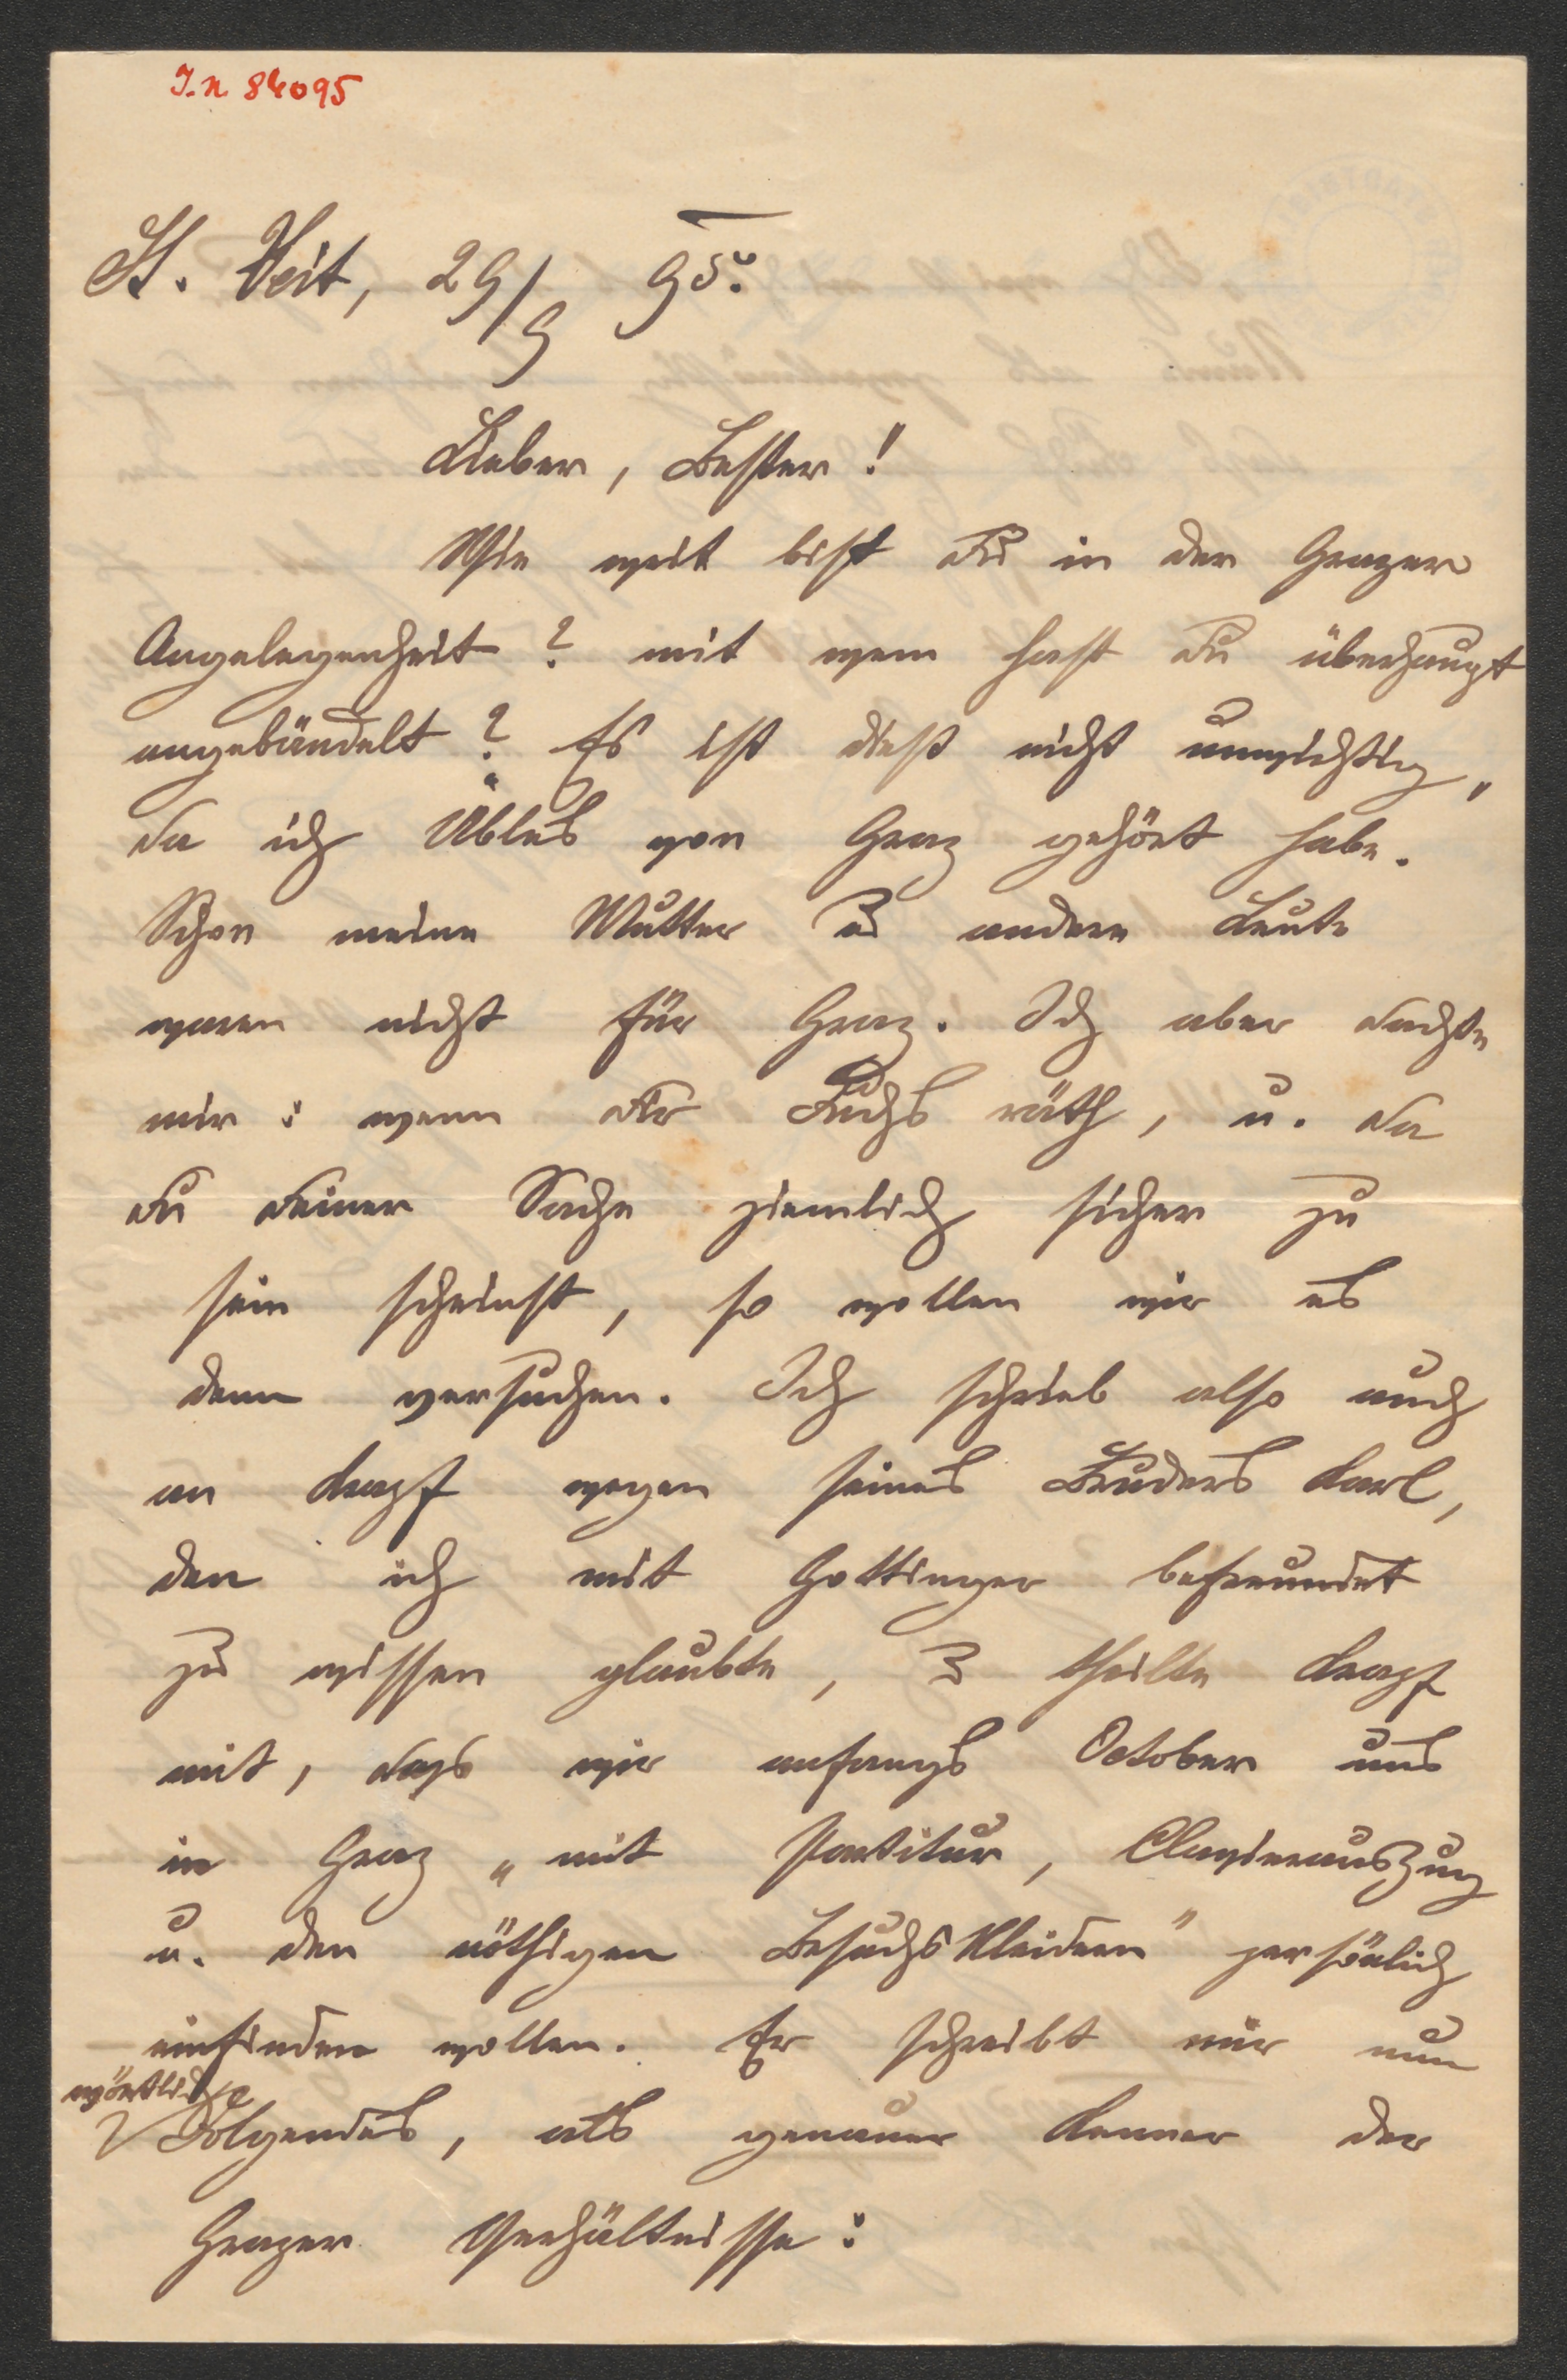 I.N 84095
St. Veit, 29/9 95.
Lieber, Bester!
Wie weit bist Du in der Grazer
Angelegenheit? mit wem hast Du überhaupt
angebändelt? Es ist dieß nicht unwichtig,
da ich Übles von Graz gehört habe.
Schon meine Mutter u andere Leute
waren nicht für Graz. Ich aber dachte
mir: wenn Dir Fuchs räth, u. da
Du Deiner Sache ziemlich sicher zu
sein scheinst, so wollen wir es
denn versuchen. Ich schrieb also auch
an Krapf wegen seines Bruders Karl,
den ich mit Gottinger befreundet
zu wissen glaubte, u theilte Krapf
mit, dass wir anfangs October uns
in Graz „mit Partitur, Clavierauszug
u. den nöthigen Besuchskleidern" persönlich
einfinden wollen. Er schreibt mir nun
wörtlich
Folgendes, als genauer Kenner der
Grazer Verhältnisse: